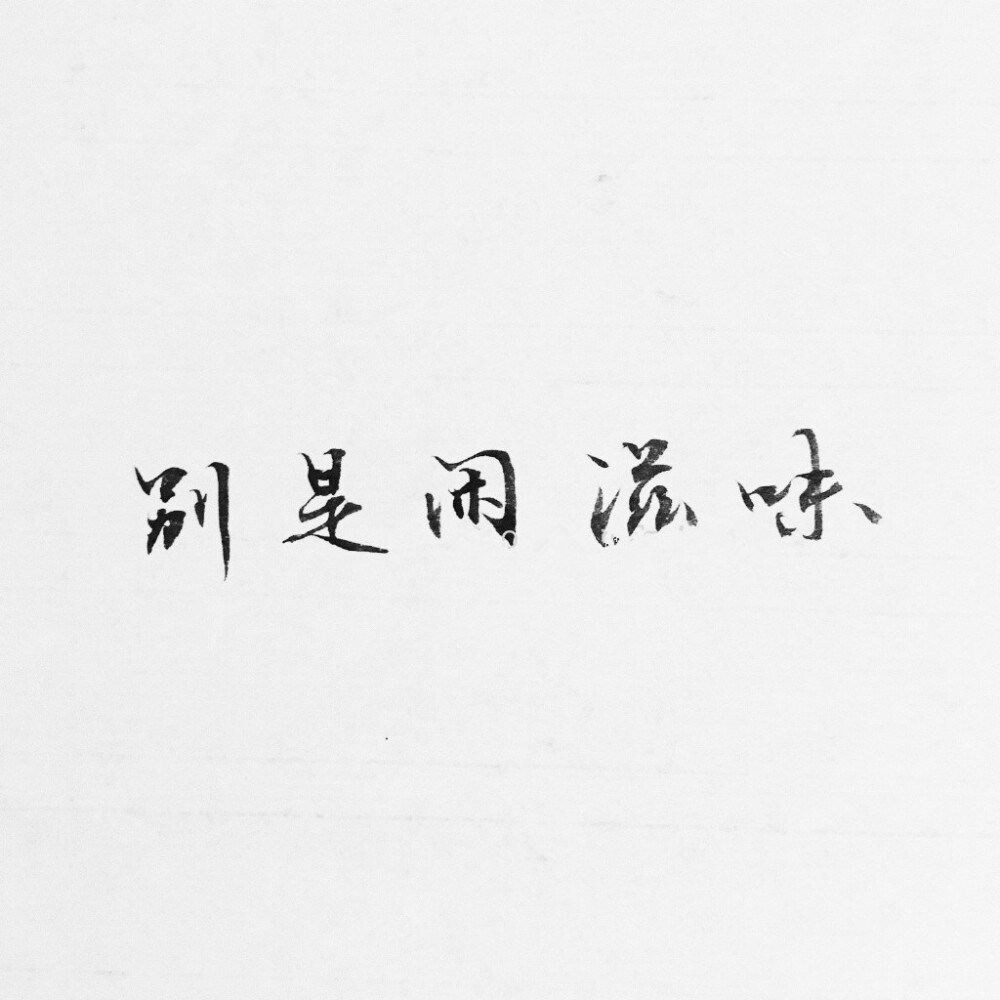 别是闲滋味